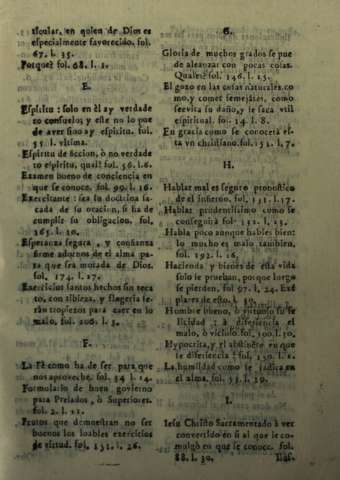 ticular, en quien de Dios es
especialmente favorecido. fol.
67. l. 35.
Porque? fol. 68. l. 1.
E.
Espiritu: solo en èl ay verdade
ro consuelo, y este no lo pue
de aver sino ay espiritu. fol.
55. l. vltima.
Espiritu de ficcion, ò no verdade
ro espiritu, qual? fol. 56. l. 6.
Examen bueno de conciencia en
que se conoce. fol. 99. l. 16.
Exercitante: sea su doctrina sa-
cada de su oracion, si ha de
cumplir su obligacion. fol.
165. l. 10.
Esperanza segura, y confianza
firme adornos de el alma pa-
ra que sea morada de Dios.
fol. 174. l. 27.
Exercicios santos hechos sin reca
to, con tibieza, y flogeria se-
ràn tropiezos para caer en lo
malo. fol. 206. l. 3.
F.
La Fè como ha de ser para que
nos aproveche. fol. 54. l. 14.
Formulario de buen govierno
para Prelados, ò Superiores.
fol. 2. l. 21.
Frutos que demuestran no ser
buenos los loables exercicios
de virtud. fol. 131. l. 26.
G.
Gloria de muchos grados se pue
de alcanzar con pocas cosas.
Quales? fol. 146. l. 15.
El gozo en las cosas naturales co
mo, y comer semejantes, como
se evita su daño, y se saca vtil
espiritual. fol. 14. l. 8.
En gracia como se conocerà es-
ta vn christiano. fol. 152. l. 7.
H.
Hablar mal es seguro pronostico
de el infierno. fol. 131. l. 17.
Hablar prudentissimo como se
conseguirà fol. 131. l. 23.
Habla poco aunque hables bien:
lo mucho es malo tambien.
fol. 192. l. 16.
Hacienda y bienes de esta vida
solo se prueban, porque luego
se pierden, fol. 97. l. 24. Exē
plares de esto. l. 30.
Hombre bueno, ò virtuoso su fe
licidad; à diferiencia el
malo, ò vicioso. fol. 100. l. 30.
Hypocrita, y el abstinēte en que
se diferiencia? fol. 139. l. 1.
La humildad como se radica en
el alma. fol. 53. l. 30.
I.
Iesu Christo Sacramentado à ver
convertido en si al que le co-
mulgò en que se conoce. fol.
88. l. 30.